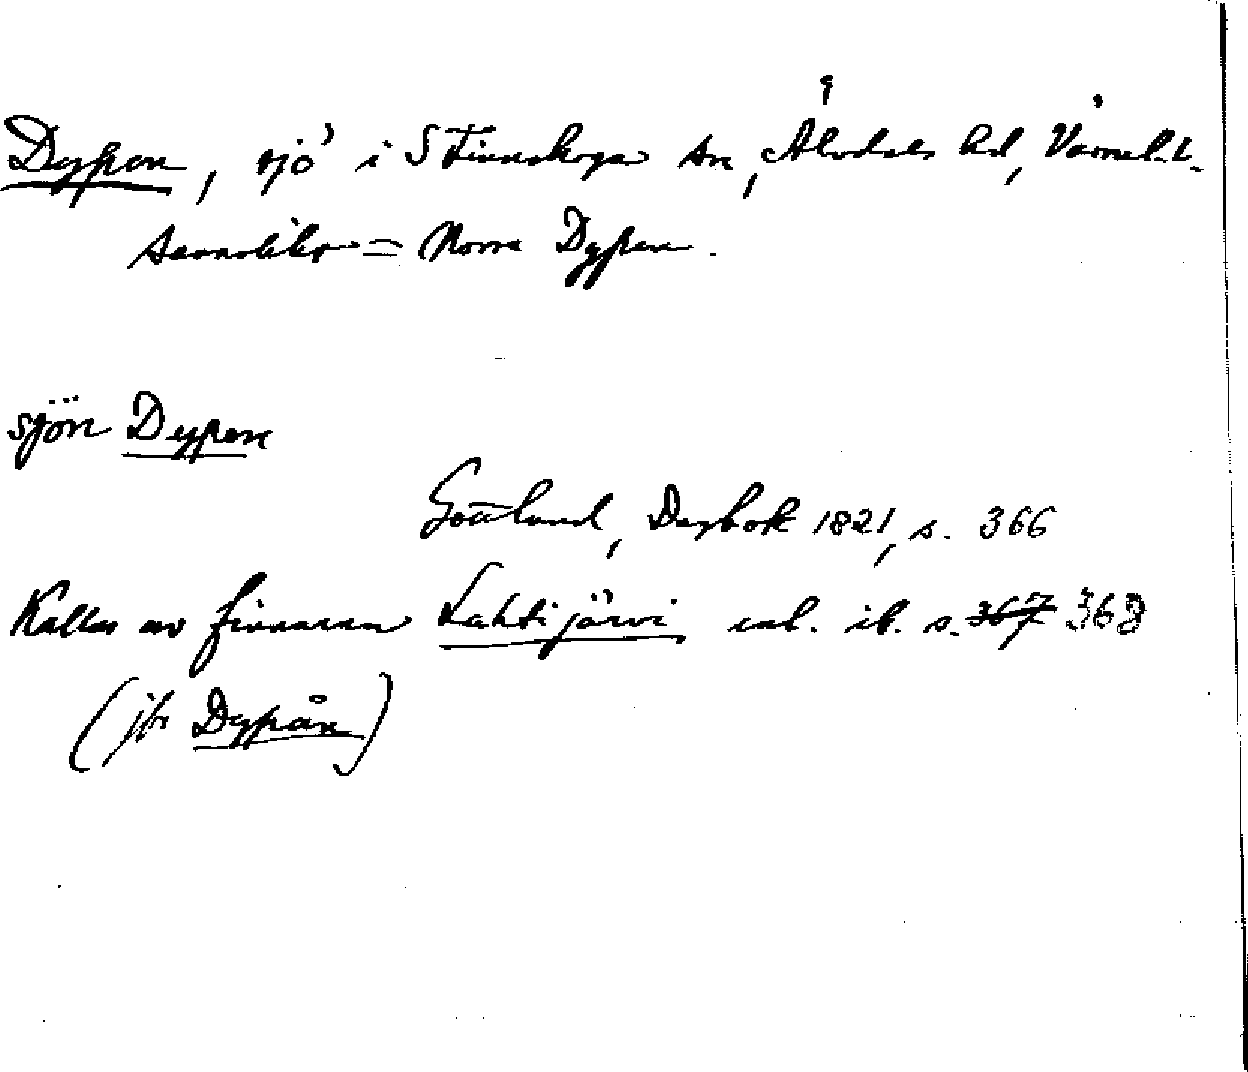 Dypen, sjö i S Finnskoga sn, Älvdals hd, Värml. l.
sannolikt = Norra Dypen.
sjön Dypen
Gottlund, Dagbok 1821, s. 366
Kallas av finnarna Lahti järvi enl. ib. s. 367 368
(jfr Dypån)